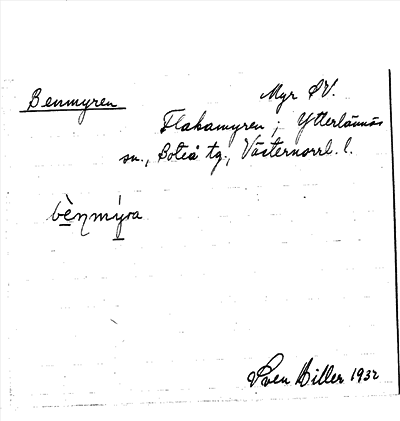 Benmyren
Myr SV.
Flakamyren, Ytterlännäs
sn., Boteå tg., Västernorrl. l.
bènmýra
Sven Biller 1932